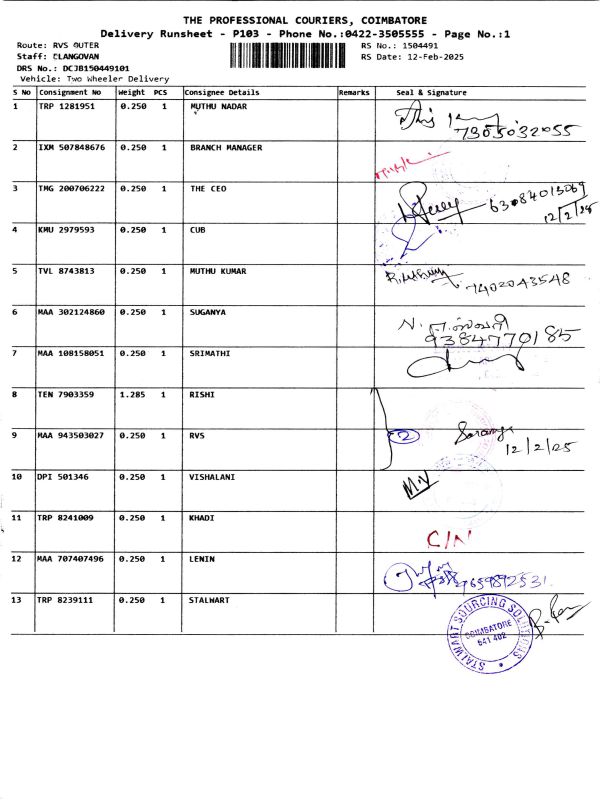 THE PROFESSIONAL COURIERS, COIMBATORE
Delivery Runsheet - P103 - Phone No.:0422-3505555 - Page No.:1
Route: RVS OUTER RS No.: 1504491
Staff: ELANGOVAN RS Date: 12-Feb-2025
DRS No.: DCJB150449101
Vehicle: Two Wheeler Delivery
S No Consignment No Weight PCS Consignee Details Remarks Seal & Signature
1 TRP 1281951 0.250 1 MUTHU NADAR
7305032055
2 IXM 507848676 0.250 1 BRANCH MANAGER
3 TMG 200706222 0.250 1 THE CEO 63084013069
12/2/25
4 KMU 2979593 0.250 1 CUB
5 TVL 8743813 0.250 1 MUTHU KUMAR
7402043548
6 MAA 302124860 0.250 1 SUGANYA
9384770185
7 MAA 108158051 0.250 1 SRIMATHI
8 TEN 7903359 1.285 1 RISHI
9 MAA 943503027 0.250 1 RVS 2
12/2/25
10 DPI 501346 0.250 1 VISHALANI M.V
11 TRP 8241009 0.250 1 KHADI
C/N
12 MAA 707407496 0.250 1 LENIN
13 TRP 8239111 0.250 1 STALWART
STALWART SOURCING SOLUTIONS
COIMBATORE
641 402